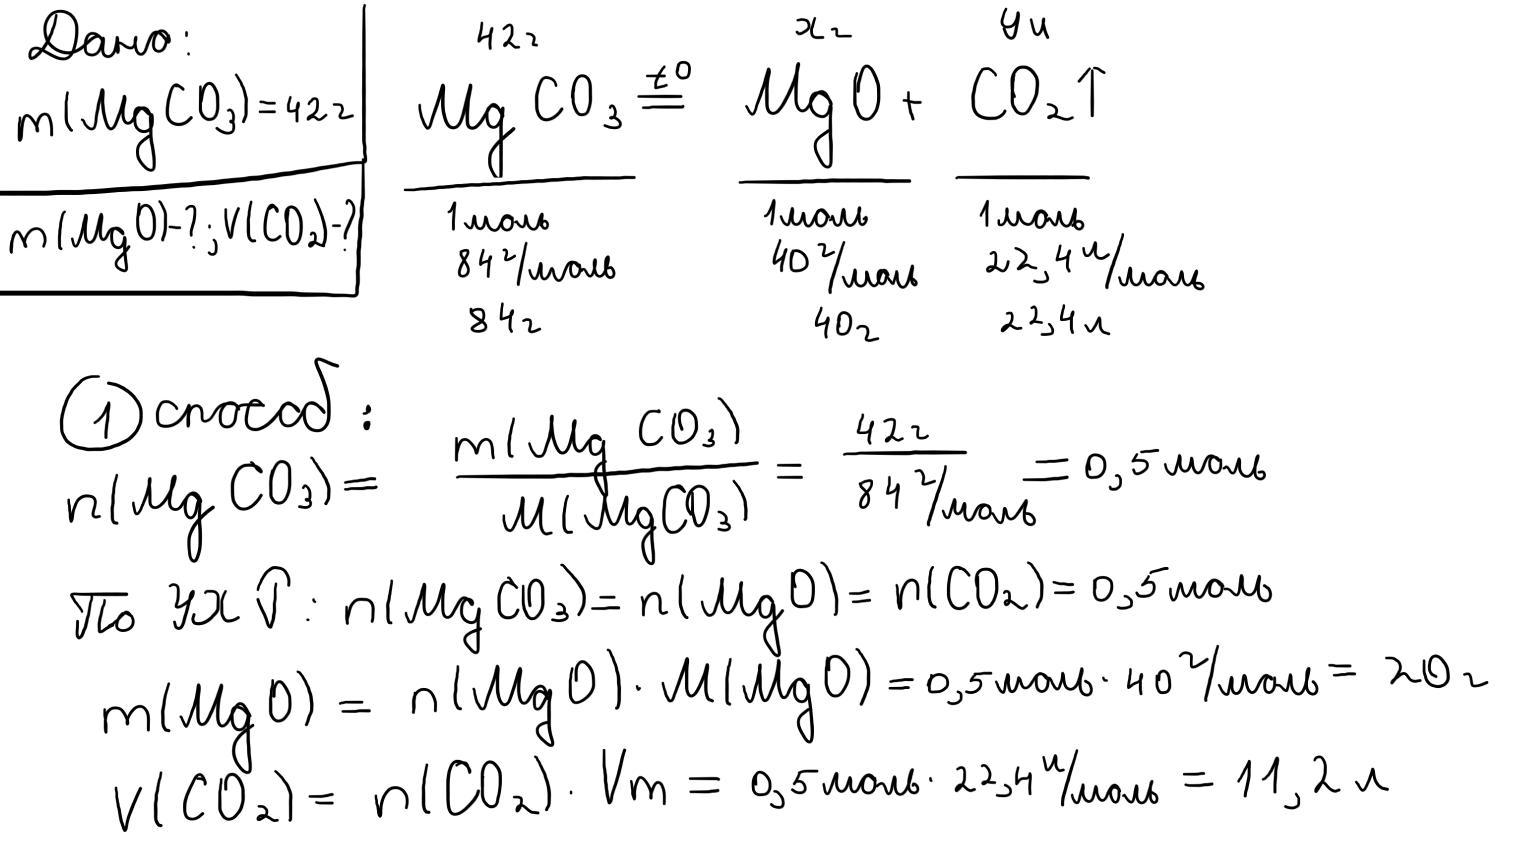 Дано:
m(MgCO₃)=42г
m(MgO)-?; V(CO₂)-?
42г xг yл
MgCO₃ =t⁰ MgO + CO₂↑
1моль 1моль 1моль
84г/моль 40г/моль 22,4л/моль
84г 40г 22,4л
① способ:
n(MgCO₃) = m(MgCO₃)/M(MgCO₃) = 42г/84г/моль = 0,5моль
По УХ : n(MgCO₃) = n(MgO) = n(CO₂) = 0,5моль
m(MgO) = n(MgO) · M(MgO) = 0,5моль · 40г/моль = 20г
V(CO₂) = n(CO₂) · Vm = 0,5моль · 22,4л/моль = 11,2л